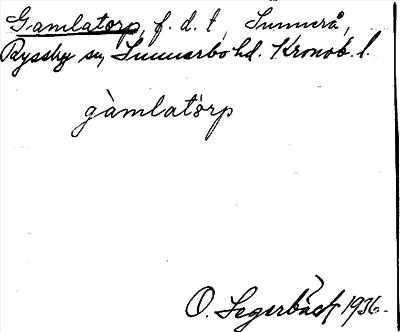 Gamlatorp, f. d. t, Sunnerå,
Ryssby sn, Sunnerbo hd. Kronob. l.
gàmlatórp
O. Segerbäck 1936.